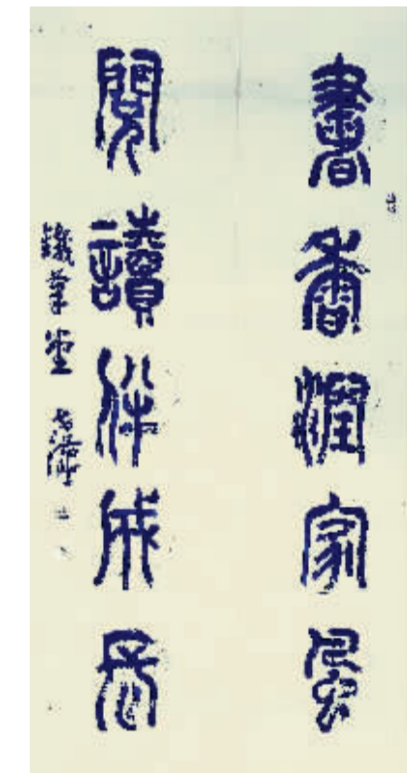 書香潤家風
閱讀伴成長
鐵筆堂